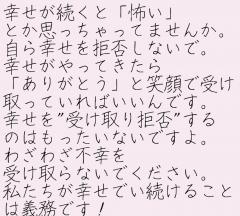 幸せが続くと「怖い」
とか思っちゃってませんか。
自ら幸せを拒否しないで。
幸せがやってきたら
「ありがとう」と笑顔で受け
取っていればいいんです。
幸せを"受け取り拒否"する
のはもったいないですよ。
わざわざ不幸を
受け取らないでください。
私たちが幸せでい続けること
は義務です！